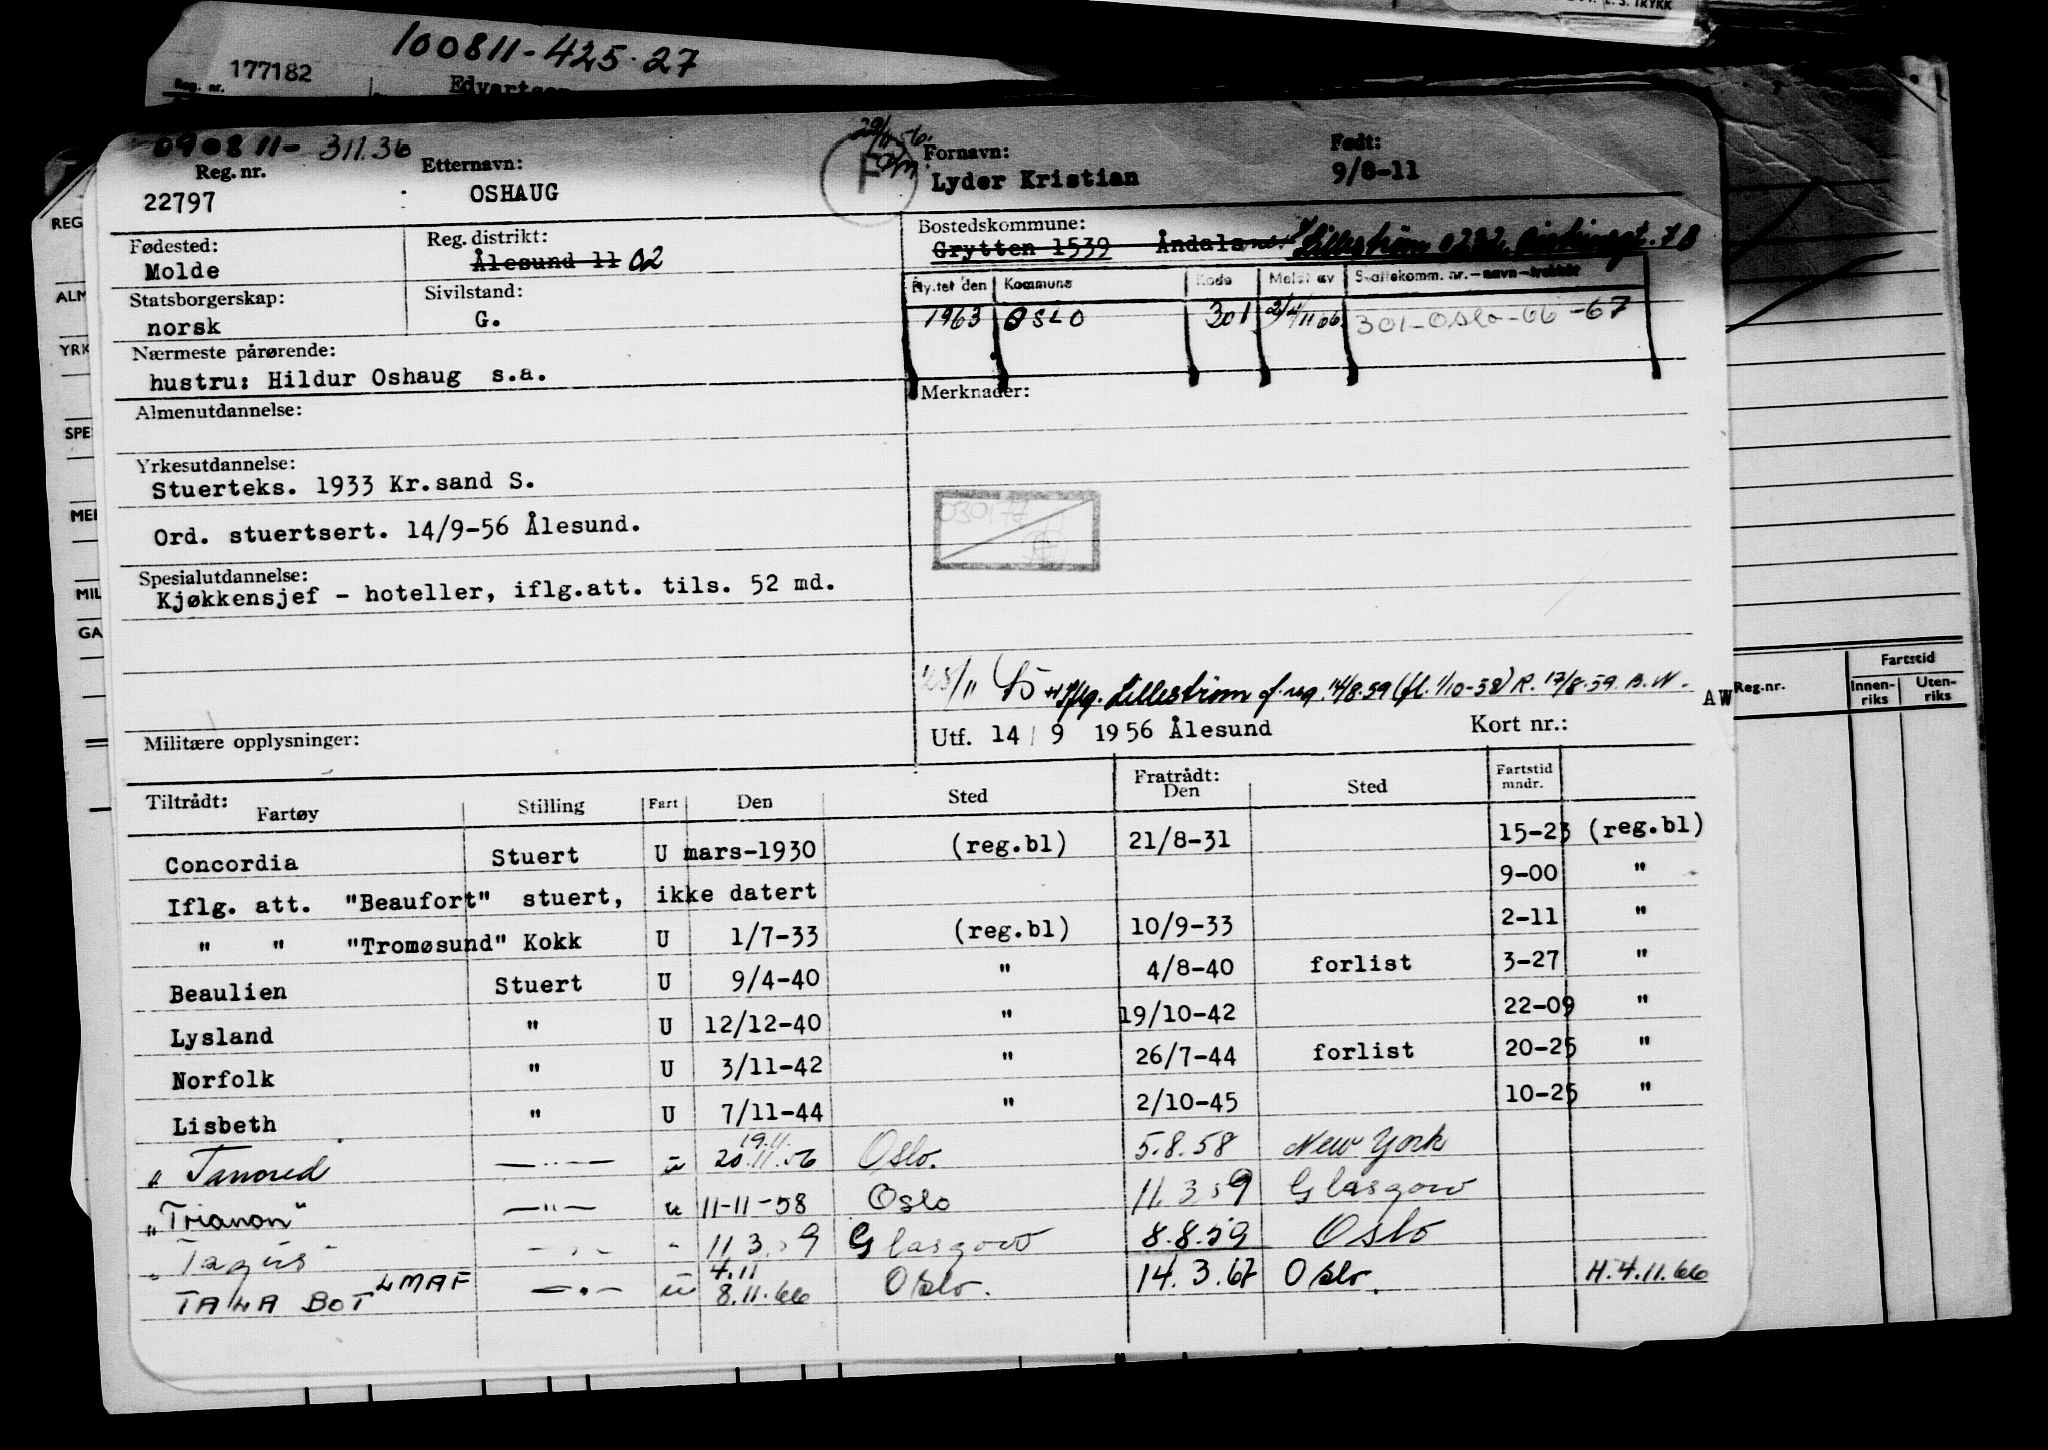 L. S. TRYKK
100811-425.27
177182
Reg. nr.
Edvartsen
090811-311.36
Reg. nr. Etternavn: Fornavn: Født:
22797 OSHAUG F Lyder Kristian 9/8-11
Fødested: Reg. distrikt: Bostedskommune:
Molde Ålesund 11 02 Grytten 1539 Åndalsnes Lillestrøm 0232
Statsborgerskap: Sivilstand: Flyttet den Kommune Kode Meldt av Skattekomm. nr.-navn-trekkår
norsk G. 1963 OSLO 301 301-Oslo-66-67
Nærmeste pårørende:
hustru: Hildur Oshaug s.a.
Almenutdannelse: Merknader:
Yrkesutdannelse:
Stuerteks. 1933 Kr.sand S.
Ord. stuertsert. 14/9-56 Ålesund.
030177
Spesialutdannelse:
Kjøkkensjef - hoteller, iflg.att. tils. 52 md.
Iflg. Lillestrøm f. reg. 14/8.59 (fl. 1/10-58) R. 17/8.59. B.W.
Militære opplysninger: Utf. 14/9 1956 Ålesund Kort nr.: AW
Tiltrådt: Fratrådt:
Fartøy Stilling Fart Den Sted Den Sted Fartstid mndr.
Concordia Stuert U mars-1930 (reg.bl) 21/8-31 15-23 (reg.bl)
Iflg. att. "Beaufort" stuert, ikke datert 9-00 "
" " "Tromøsund" Kokk U 1/7-33 (reg.bl) 10/9-33 2-11 "
Beaulien Stuert U 9/4-40 " 4/8-40 forlist 3-27 "
Lysland " U 12/12-40 " 19/10-42 22-09 "
Norfolk " U 3/11-42 " 26/7-44 forlist 20-25 "
Lisbeth " U 7/11-44 " 2/10-45 10-25 "
19.11.
" Tancred —"— u 20.11.56 Oslo. 5.8.58 New York
"Trianon" —"— u 11-11-58 Oslo 11.3.59 Glasgow
" Tagus —"— " 11.3.59 Glasgow 8.8.59 Oslo
4.11
TALABOT LMAF —"— u 8.11.66 Oslo. 14.3.67 Oslo. H.4.11.66
REG
ALM
YRK
SPE
MEI
MIL
GA
Reg.nr.
Fartstid
Innenriks
Utenriks